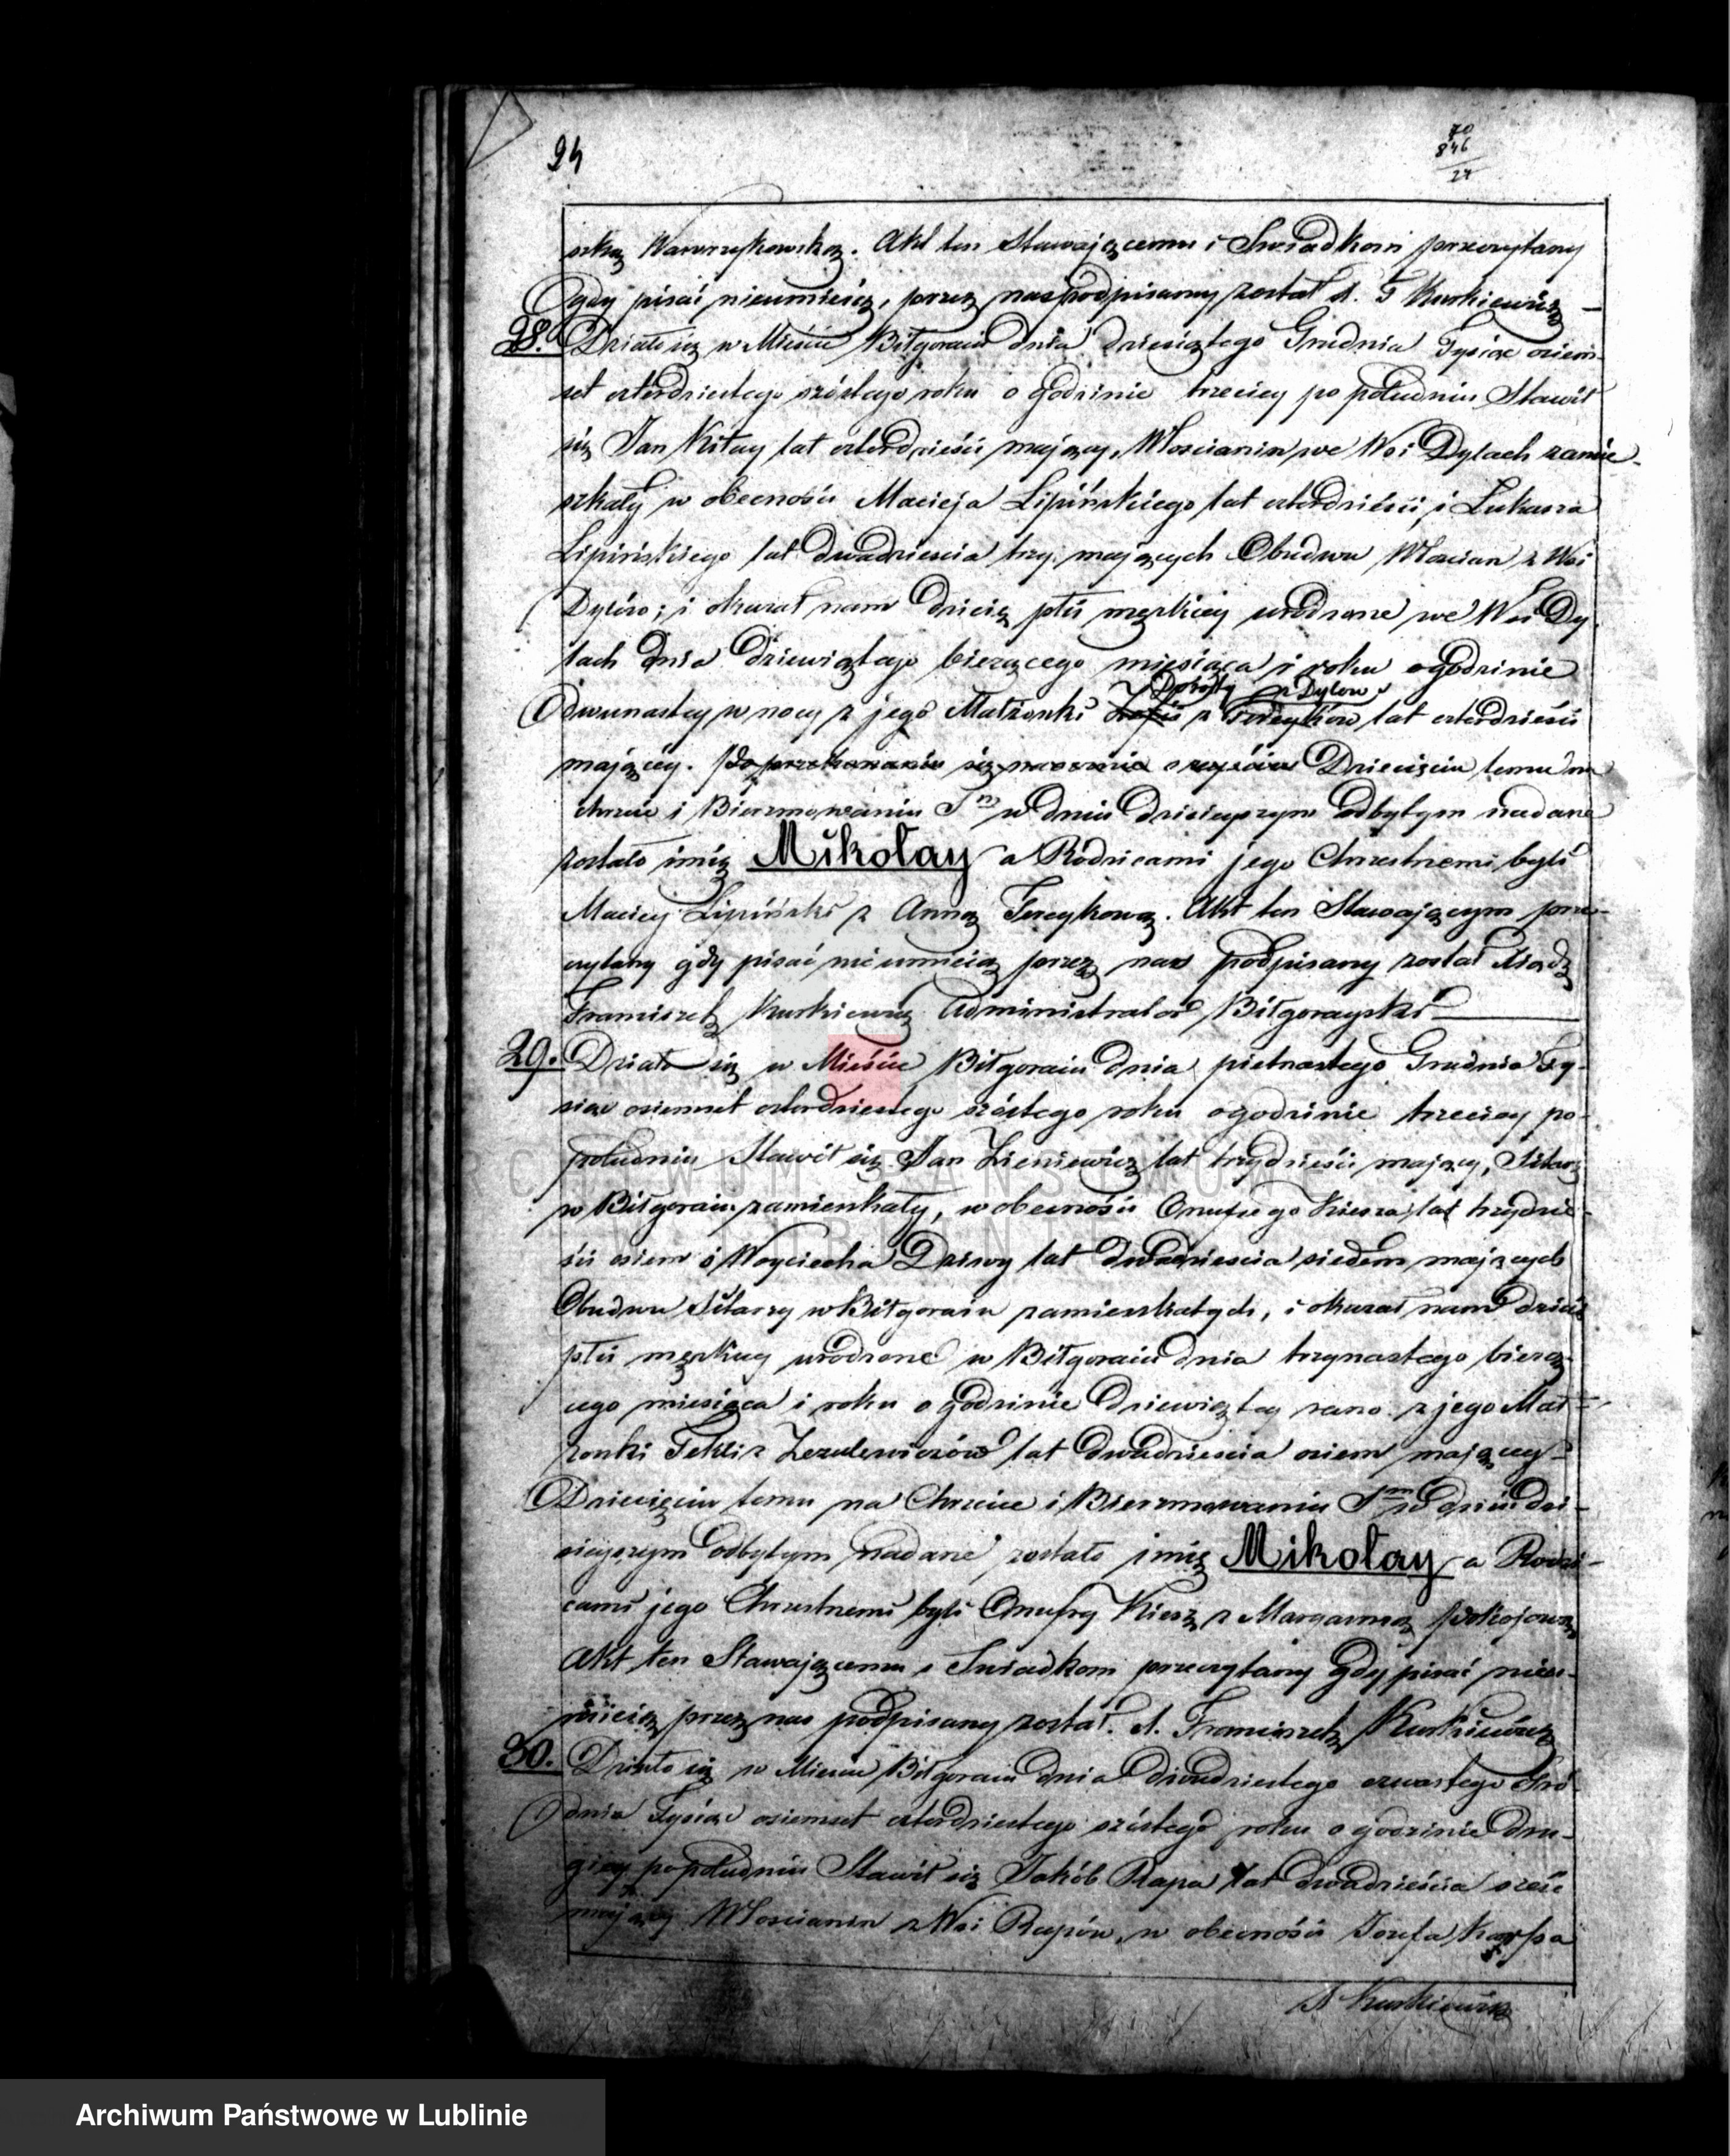 24
70
846
24
szką Wawrzykowską. Akt ten Stawającemu i Swiadkom przeczytany
gdy pisać nieumieią, przez nas podpisany został X. F Kurkiewicz
28. Działo się w Mieście Biłgoraiu dnia dziesiątego Grudnia Tysiąc osiem-
set czterdziestego szóstego roku o godzinie trzeciey po południu Stawił
się Jan Kiłay lat czterdzieści mający, Włoscianin we Wsi Dylach zamie-
szkały w obecności Macieja Lipińskiego lat czterdzieści, i Łukasza
Lipińskiego lat dwadziescia trzy mających Obudwu Włoscian z Wsi
Dylów; i okazał nam dziecię płci męzkiey urodzone we Wsi Dy-
lach dnia dziewiątego bierzącego miesiąca i roku o godzinie
z Dylow
dwunastey w nocy z jego Małżonki z lat czterdzieści
mającey. Dziecięciu temu na
chrzcie i Bierzmowaniu Sm w dniu dzisieyszym odbytym nadane
zostało imię Mikołay a Rodzicami jego Chrzestnemi byli
Maciey Lipiński z Anną Fereykową. Akt ten Stawającym prze-
czytany gdy pisać nieumieią przez nas podpisany został Xiądz
Franciszek Kurkiewicz Administrator Biłgorayski
29. Działo się w Mieście Biłgoraiu dnia pietnastego Grudnia Ty-
siąc osiemset czterdziestego szóstego roku o godzinie trzeciey po-
południu Stawił się Jan Zieniewicz lat trzydzieści mający, Sitarz
w Biłgoraiu zamieszkały, w obecności Onufrego Kiesza lat trzydzie-
ści osiem i Woyciecha Dziwy lat dwadziescia siedem mających
Obudwu Sitarzy w Biłgoraiu zamieszkałych, i okazał nam dziecię
płci męzkiey urodzone w Biłgoraiu dnia trzynastego bierzą-
cego miesiąca i roku o godzinie dziewiątey rano z jego Mał-
żonki Tekli z Zezulewiczów lat dwadziescia osiem mającey
Dziecięciu temu na Chrzcie i Bierzmowaniu Sm w dniu dzi-
sieyszym odbytym nadane zostało imię Mikołay a Rodzi-
cami jego Chrzestnemi byli Onufry Kiesz z Maryanną Pokojową
Akt ten Stawającemu i Swiadkom przeczytany gdy pisać nieu-
mieią przez nas podpisany został. X. Franciszek Kurkiewicz
30. Działo się w Miescie Biłgoraiu dnia dwudziestego czwartego Gru-
dnia Tysiąc osiemset czterdziestego szóstego roku o godzinie dru-
giey popołudniu Stawił się Jakób Rapa lat dwadzieścia sześć
mający Włoscianin z Wsi Rapów, w obecności Jozefa Karpa
X Kurkiewicz
ARCHIWUM PAŃSTWOWE
W LUBLINIE
Archiwum Państwowe w Lublinie